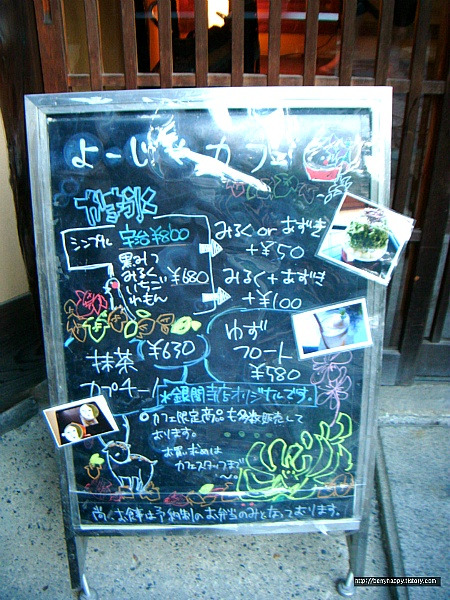 よーじやカフェ
かき氷
シンプル 宇治¥800
黒みつ
みるく
いちご
れもん
¥680
みるく or あずき
+¥50
みるく+あずき
+¥100
抹茶
カプチーノ
¥630
ゆず
フロート
¥580
*銀閣寺店オリジナルです。
カフェ限定商品も多数販売して
おります。
お買い求めは
カフェスタッフまで
尚、お食事は予約制のお弁当のみとなっております。
http://bennynappy.tistory.com